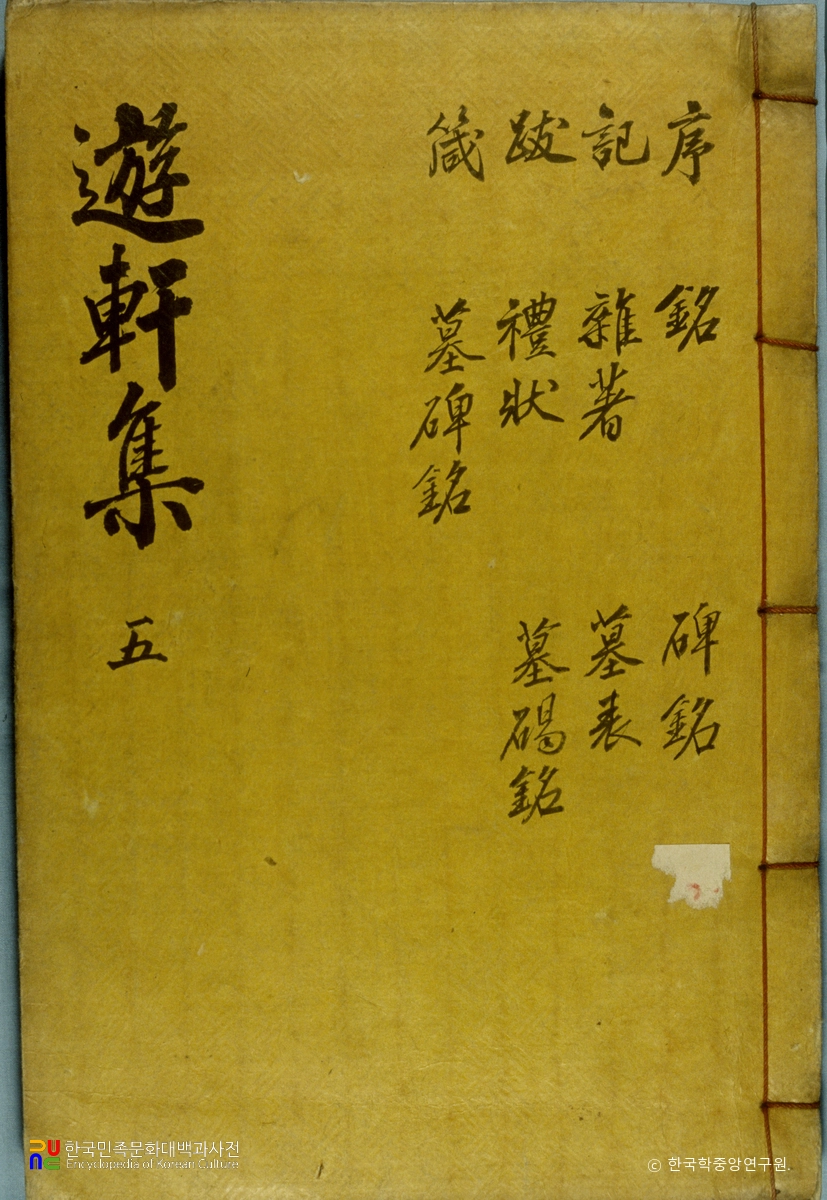 遊軒集 五
序 銘 碑銘
記 雜著 墓表
跋 禮狀 墓碣銘
箴 墓碑銘
한국민족문화대백과사전
Encyclopedia of Korean Culture
© 한국학중앙연구원